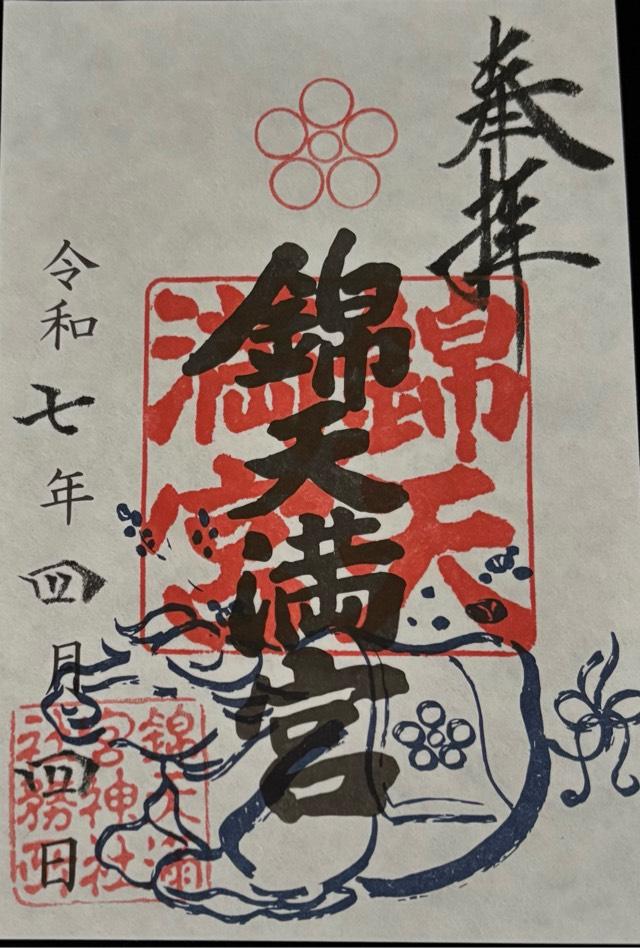 奉拝
錦天満宮
錦天
満宮
令和七年四月四日
錦天満
宮神社
社務所